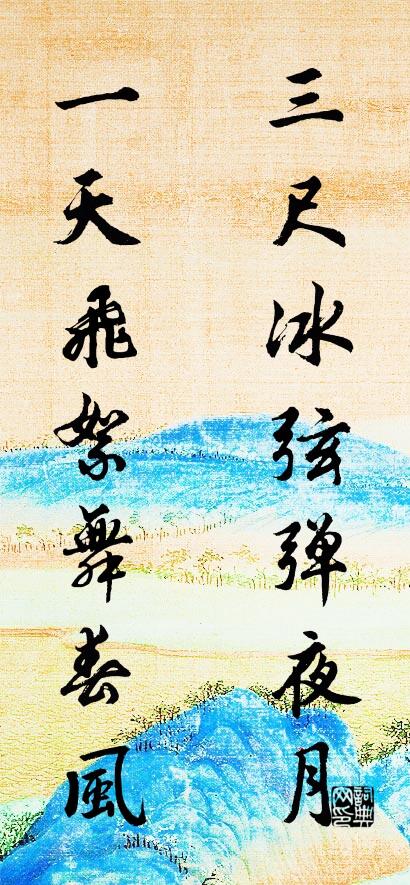 三尺冰弦弹夜月
一天飛絮舞春風